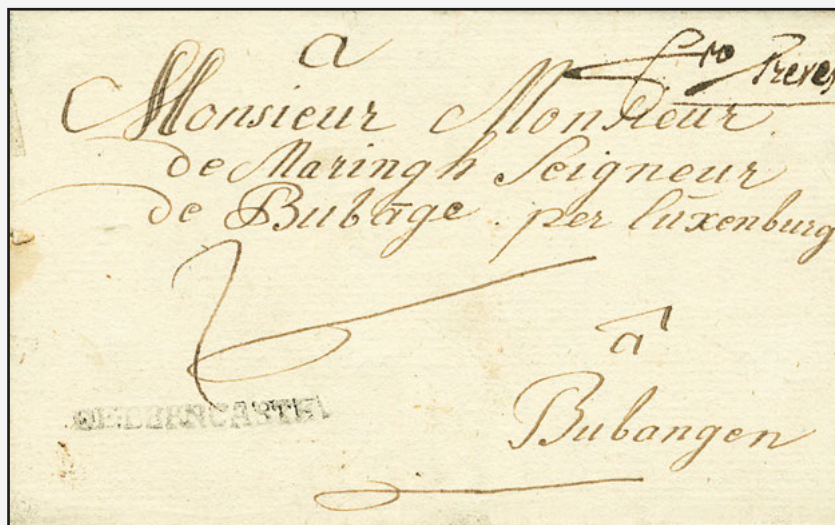 a
fro Treves
Monsieur Monsieur
de Maringh Seigneur
de Bubāge per lūxenburg
a
Bubangen
DE BERNCASTEL